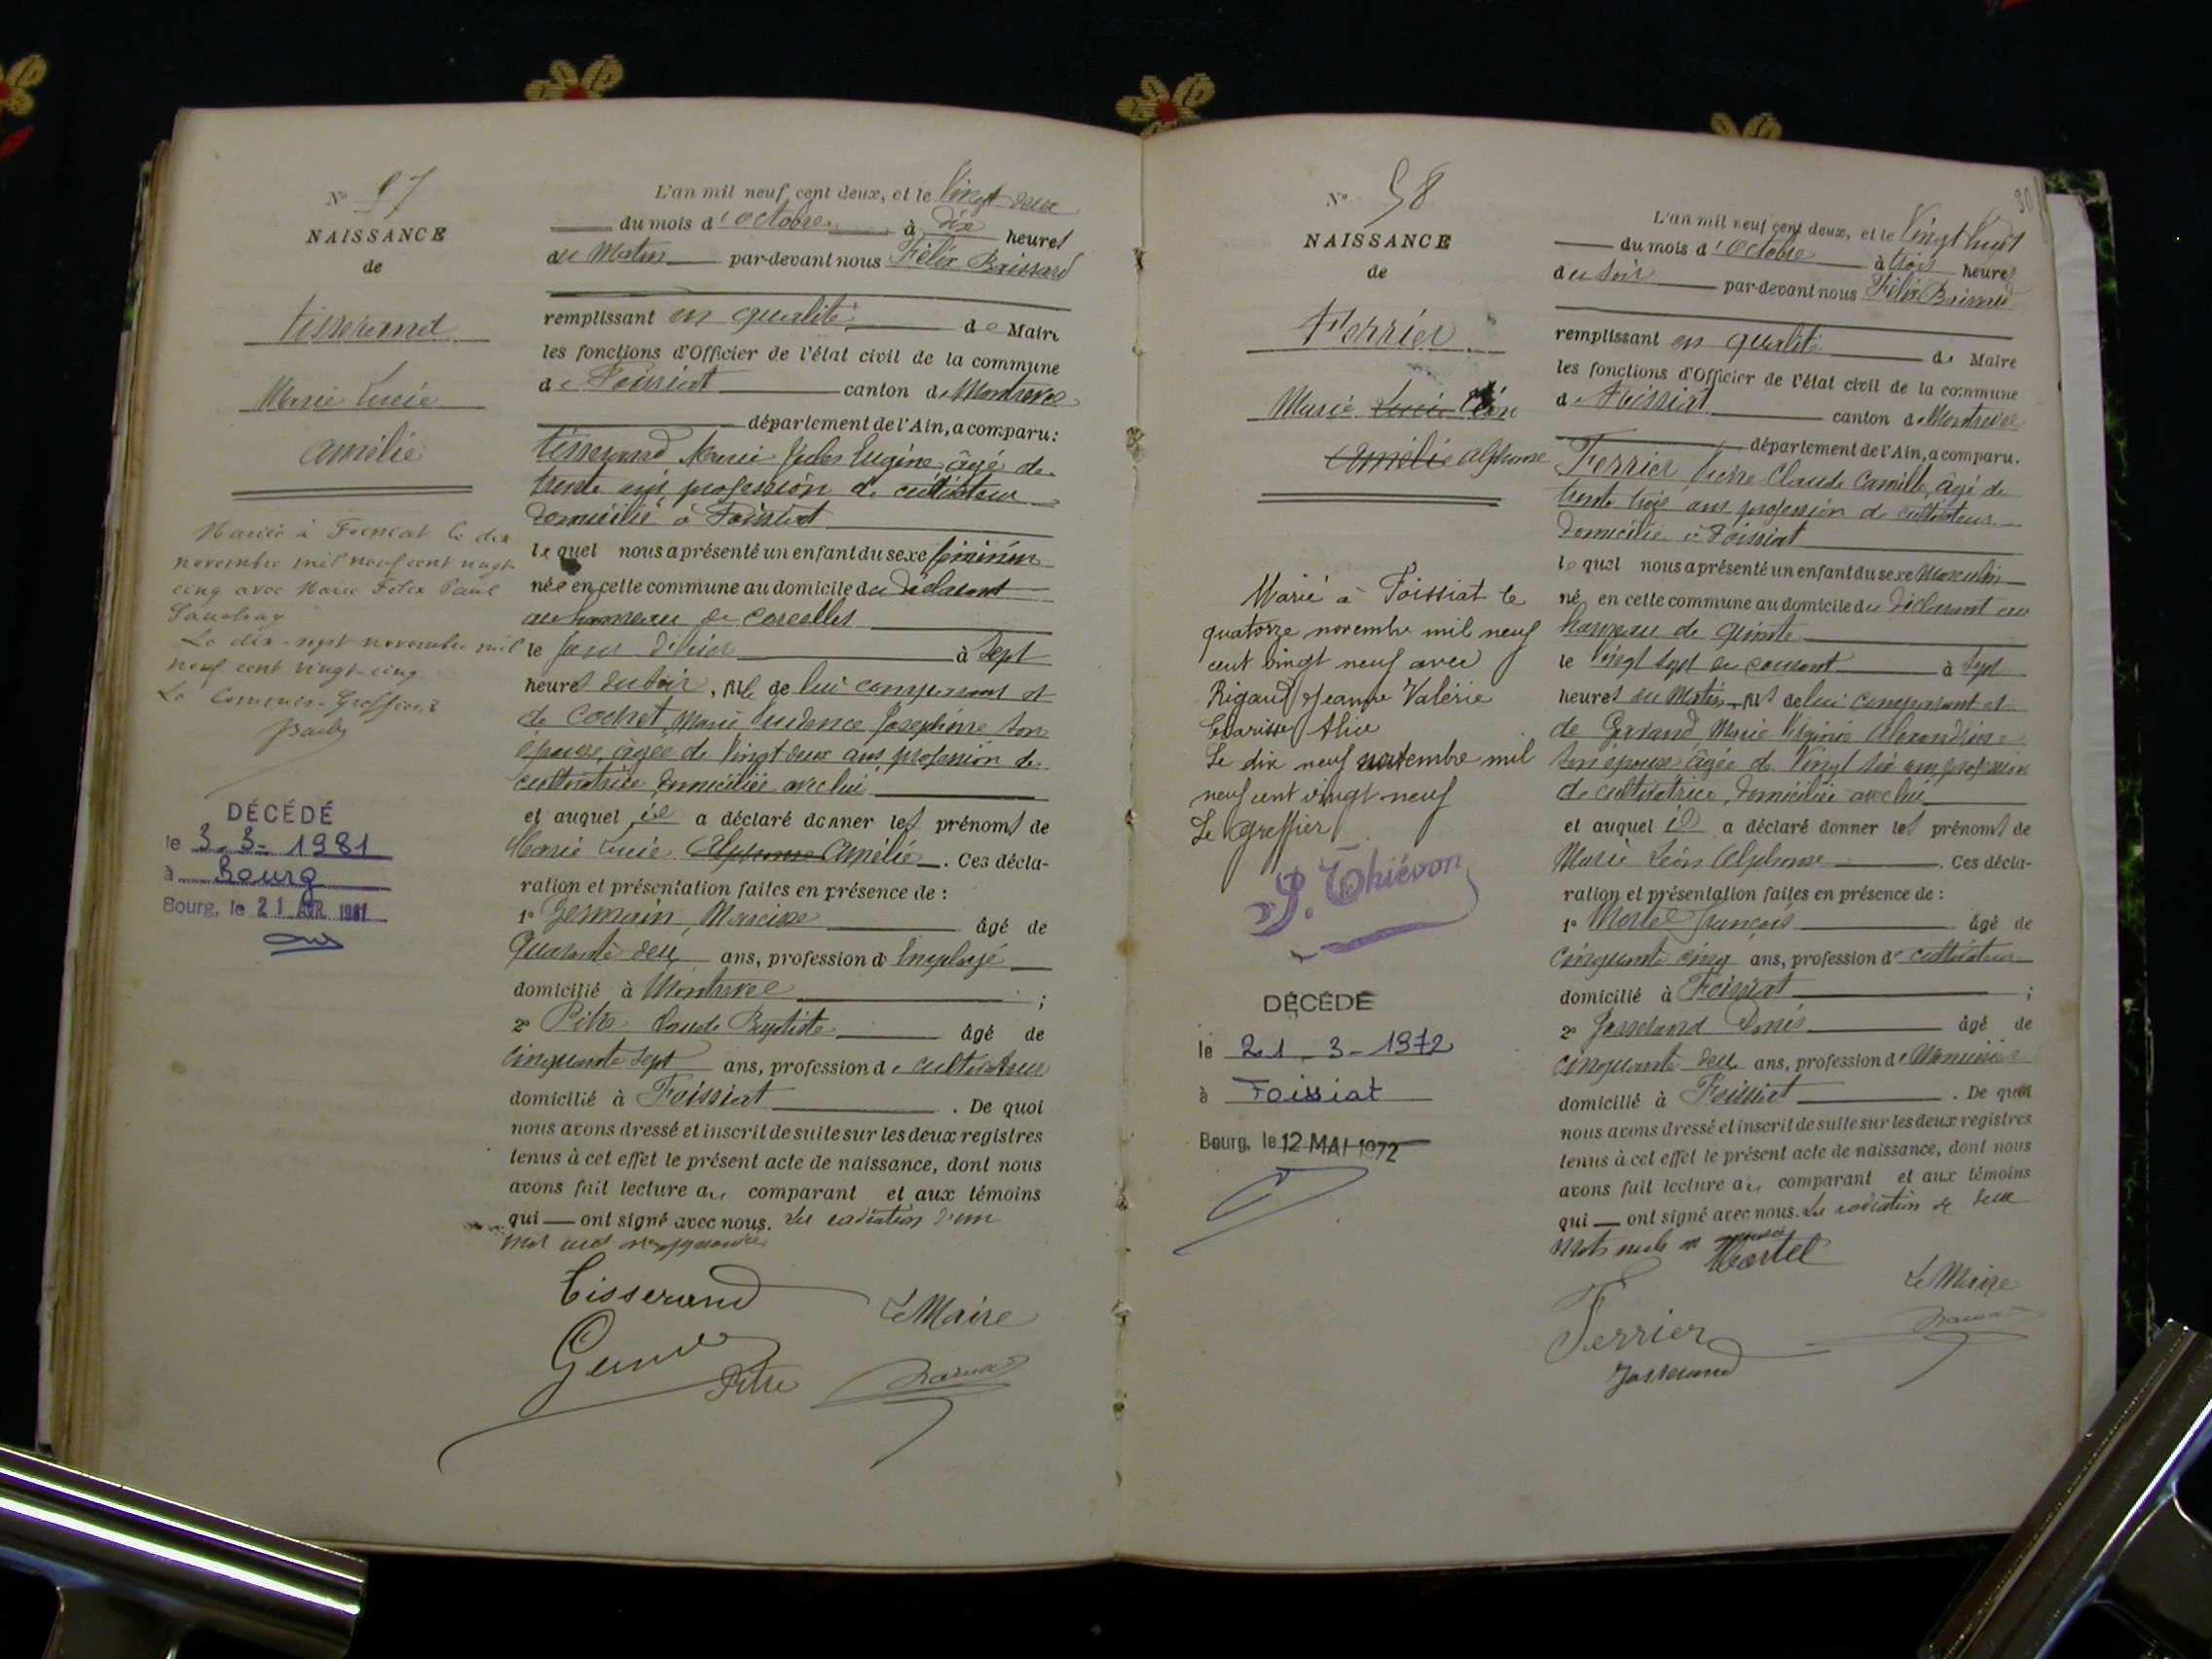 N° 57
NAISSANCE
de
Tisserand
Marie Lucie
Amélie
Mariée à Foissiat le dix
novembre mil neuf cent vingt
cinq avec Marie Félix Paul
Le dix-sept novembre mil
neuf cent vingt-cinq
Le Commis-Greffier
DÉCÉDÉ
le 3-3-1981
à Bourg
Bourg, le 21 AVR. 1981
L'an mil neuf cent deux, et le Vingt deux
du mois d'octobre à dix heures
du Matin par-devant nous Félix Baissard
remplissant en qualité de Maire
les fonctions d'Officier de l'état civil de la commune
de Foissiat canton de Montrevel
département de l'Ain, a comparu :
Tisserand Marie Jules Eugène, âgé de
trente ans, profession de cultivateur
domicilié à Foissiat
lequel nous a présenté un enfant du sexe féminin
née en cette commune au domicile du déclarant
au hameau de Corcelles
le jour d'hier à Sept
heures du soir, fille de lui comparant et
de Cochet Marie Prudence Joséphine son
épouse, âgée de Vingt deux ans, profession de
cultivatrice domiciliée avec lui
et auquel il a déclaré donner les prénoms de
Marie Lucie Alphonse Amélie. Ces décla-
ration et présentation faites en présence de :
1° Germain, Narcisse âgé de
Quarante deux ans, profession d'Employé
domicilié à Montrevel ;
2° Pitre Claude Baptiste âgé de
cinquante sept ans, profession de cultivateur
domicilié à Foissiat. De quoi
nous avons dressé et inscrit de suite sur les deux registres
tenus à cet effet le présent acte de naissance, dont nous
avons fait lecture au comparant et aux témoins
qui ont signé avec nous. La radiation d'un
mot nul
Tisserand
Le Maire
Pitre
N° 58
NAISSANCE
de
Ferrier
Marie Lucie Léon
Amélie Alphonse
Marié à Foissiat le
quatorze novembre mil neuf
cent vingt neuf avec
Rigaud Jeanne Valérie
Clarisse Alice
Le dix neuf novembre mil
neuf cent vingt neuf
Le Greffier
P. Thiévon
DÉCÉDÉ
le 21-3-1972
à Foissiat
Bourg, le 12 MAI 1972
30
L'an mil neuf cent deux, et le Vingt huit
du mois d'octobre à trois heures
du soir par-devant nous Félix Baissard
remplissant en qualité de Maire
les fonctions d'Officier de l'état civil de la commune
de Foissiat canton de Montrevel
département de l'Ain, a comparu.
Ferrier Claude Camille, âgé de
trente trois ans profession de cultivateur
domicilié à Foissiat
lequel nous a présenté un enfant du sexe Masculin
né en cette commune au domicile du déclarant au
hameau de
le Vingt sept du courant à sept
heures du Matin, fils de lui comparant et
de Marie Virginie Alexandrine
son épouse âgée de Vingt six ans, profession
de cultivatrice, domiciliée avec lui
et auquel il a déclaré donner les prénoms de
Marie Léon Alphonse. Ces décla-
ration et présentation faites en présence de :
1° Mortel François âgé de
cinquante cinq ans, profession de cultivateur
domicilié à Foissiat ;
2° Josserand Denis âgé de
cinquante deux ans, profession de Menuisier
domicilié à Foissiat. De quoi
nous avons dressé et inscrit de suite sur les deux registres
tenus à cet effet le présent acte de naissance, dont nous
avons fait lecture au comparant et aux témoins
qui ont signé avec nous. La radiation de deux
mots nuls
Mortel
Le Maire
Ferrier
Josserand